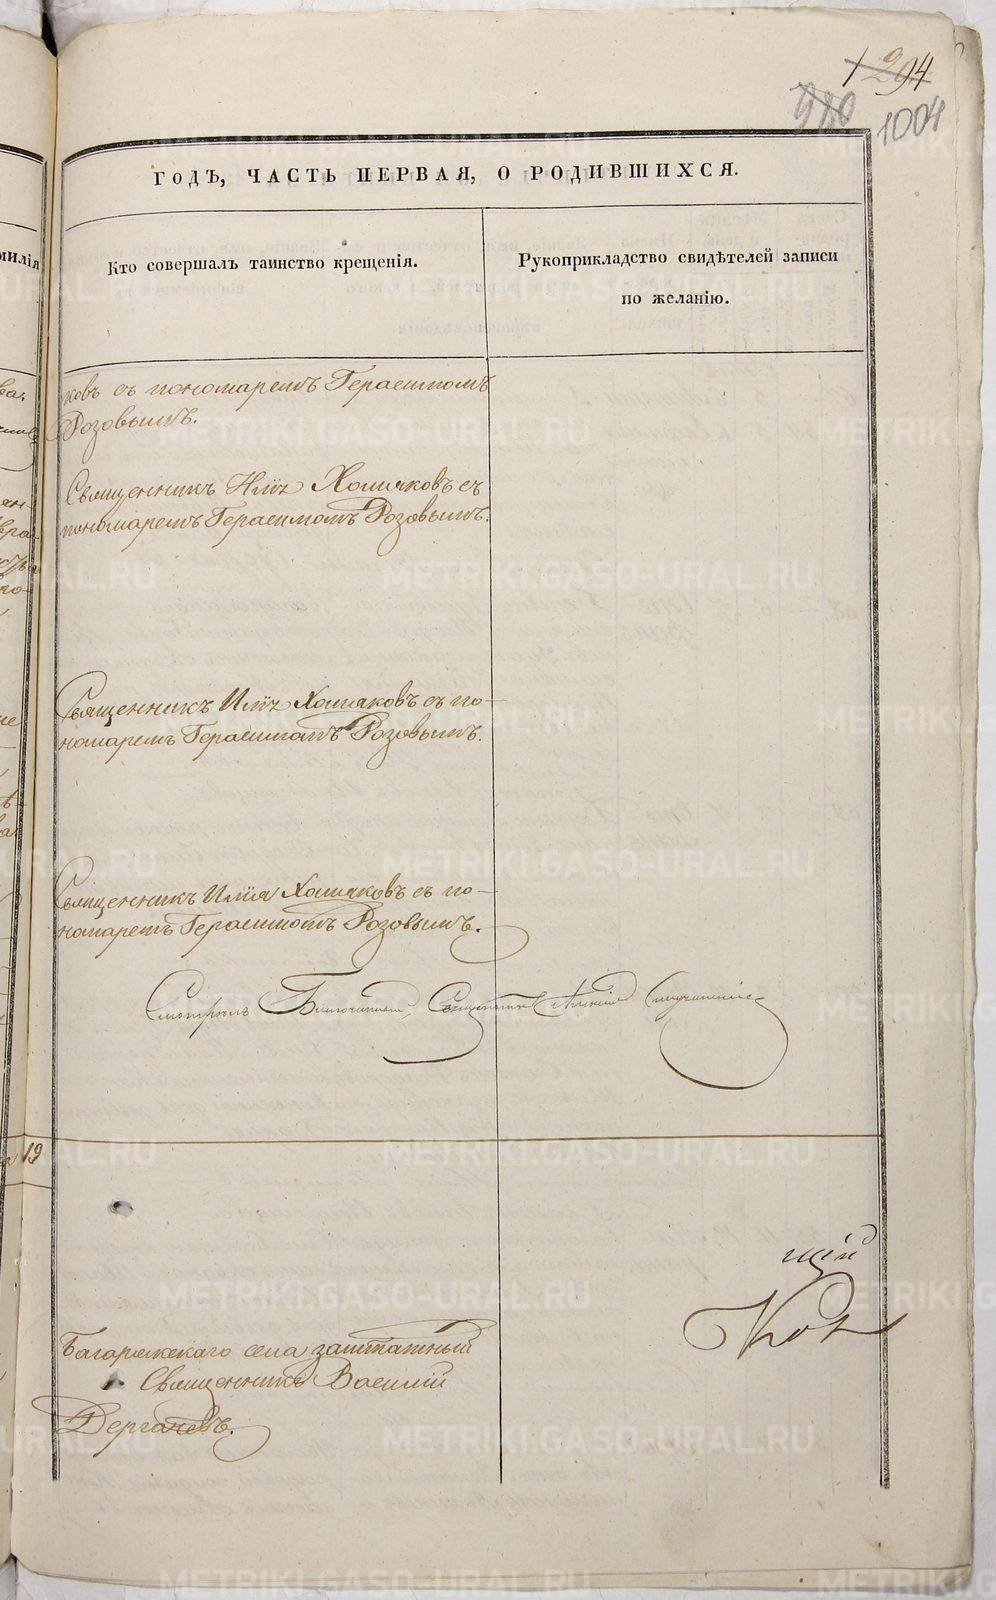 1294
980
1004
ГОДЪ, ЧАСТЬ ПЕРВАЯ, О РОДИВШИХСЯ.
милія
Кто совершалъ таинство крещенія.
Рукоприкладство свидѣтелей записи
по желанію.
ковъ съ пономаремъ Герасимомъ
Розовымъ.
Священникъ Иліа Хомяковъ съ
пономаремъ Герасимомъ Розовымъ.
Священникъ Иліа Хомяковъ съ по-
номаремъ Герасимомъ Розовымъ.
Священникъ Иліа Хомяковъ съ по-
номаремъ Герасимомъ Розовымъ.
Смотрѣлъ Благочинный, Священникъ Алексій
19
щій
Кол
Багарякскаго села заштатный
Священникъ Василій
Дергачевъ.
METRIKI.GASO-URAL.RU